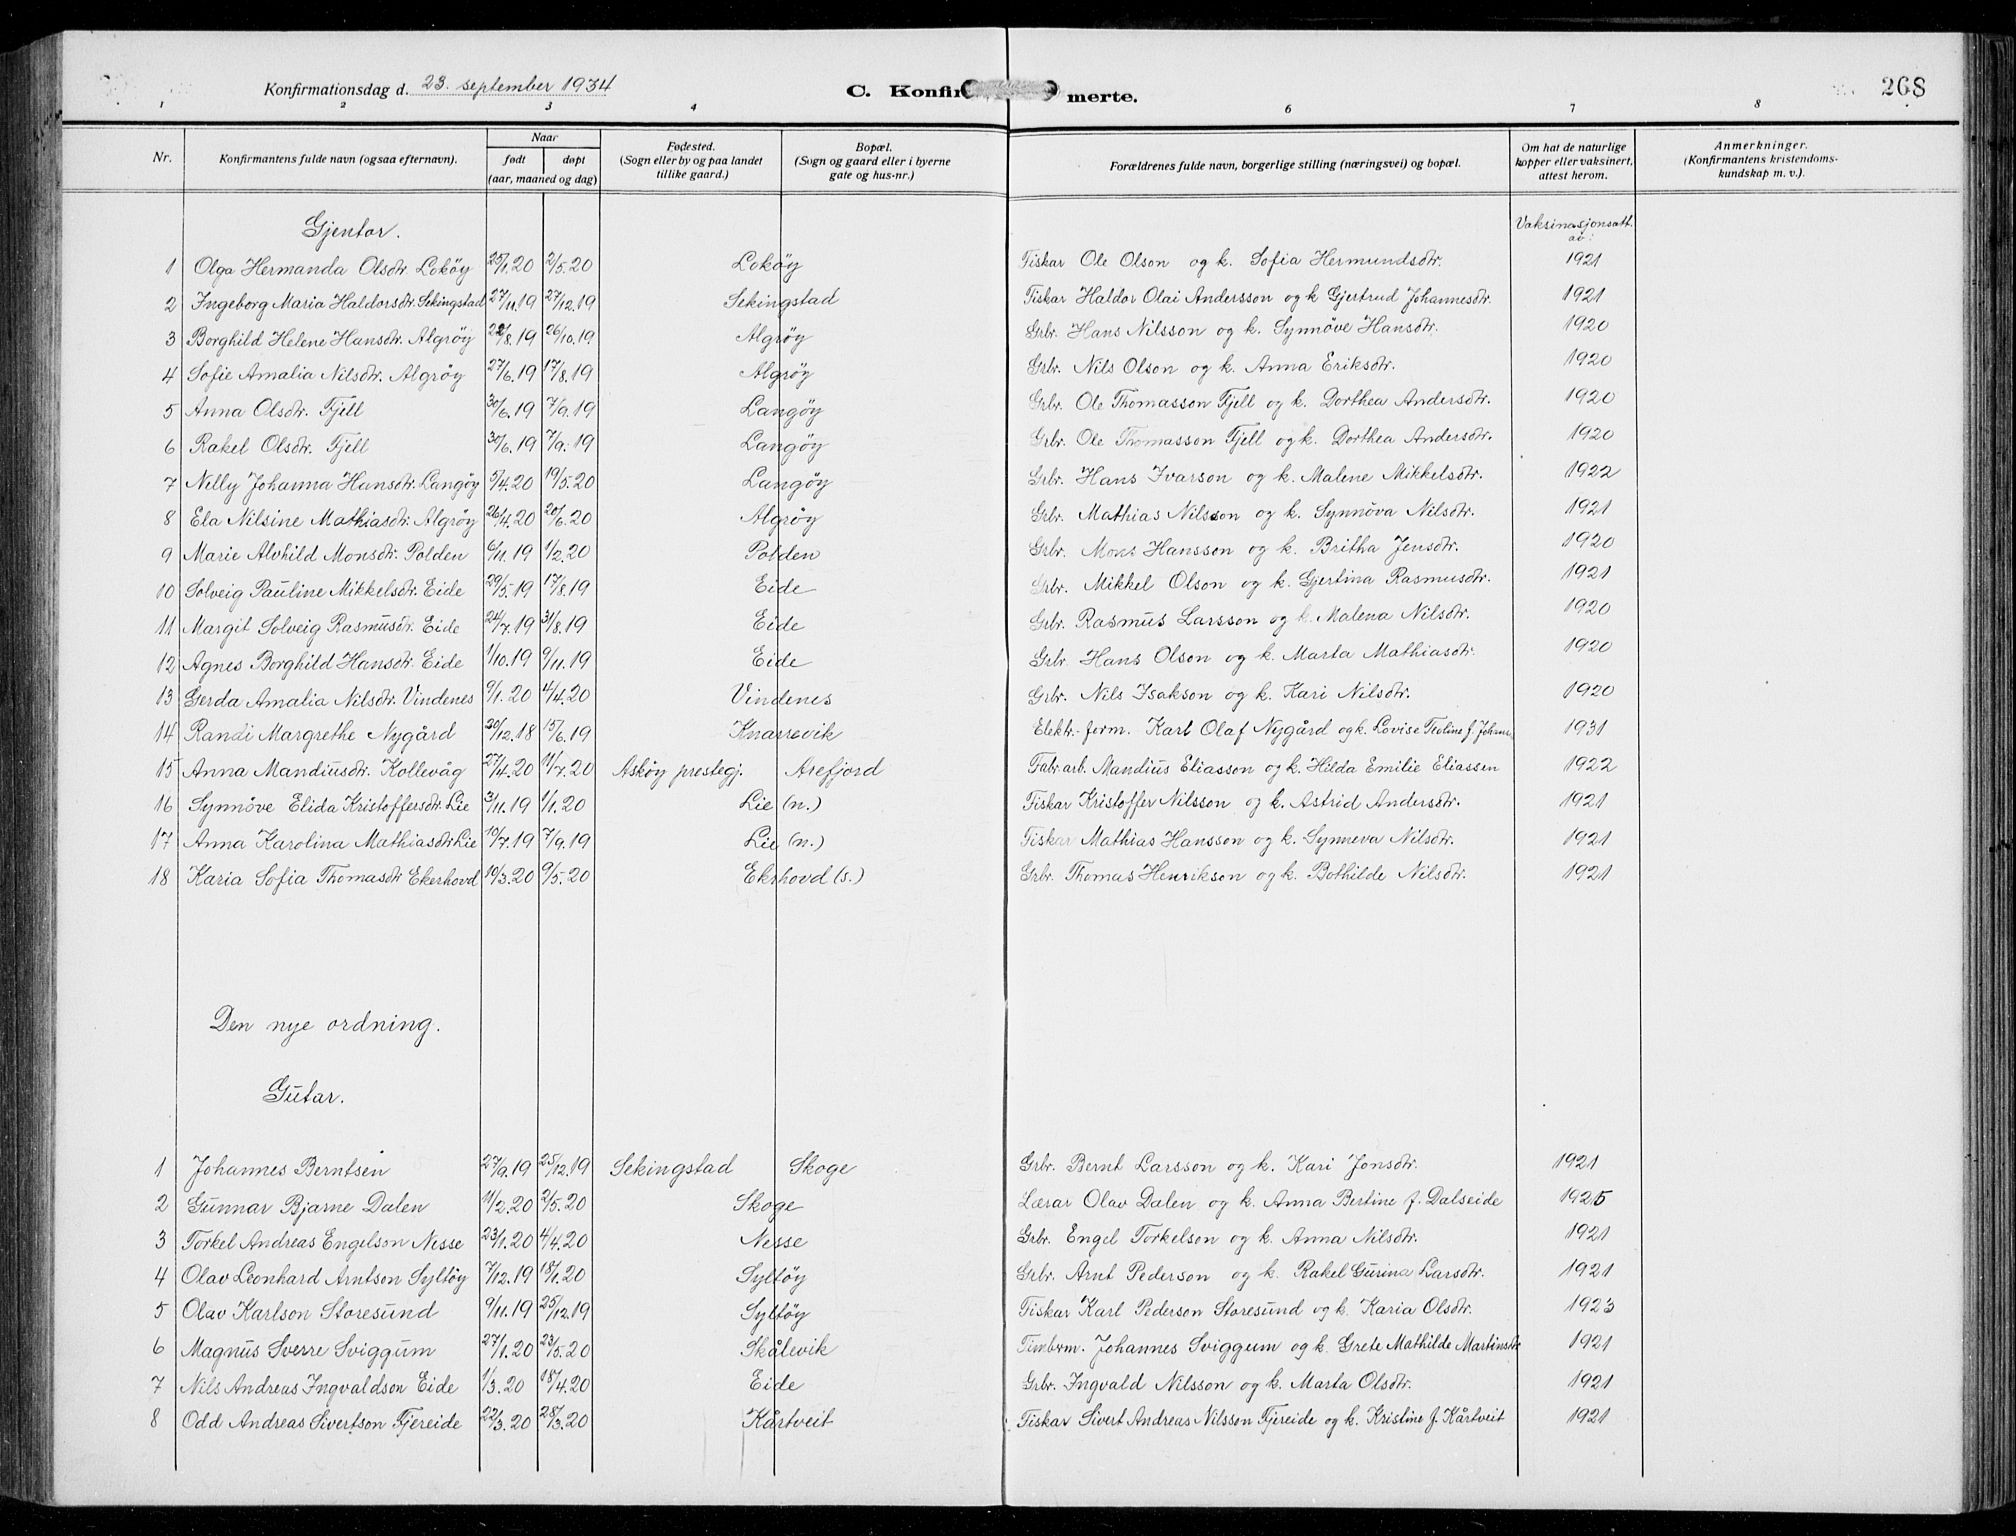 Konfirmationsdag d. 23. september 1934 C. Konfir merte. 268
1 2 3 4 6 7 8
Nr. Konfirmantens fulde navn (ogsaa efternavn). Naar født døpt (aar, maaned og dag) Fødested. (Sogn eller by og paa landet tillike gaard.) Bopæl. (Sogn og gaard eller i byerne gate og hus-nr.) Forældrenes fulde navn, borgerlige stilling (næringsvei) og bopæl. Om hat de naturlige kopper eller vaksinert, attest herom. Anmerkninger. (Konfirmantens kristendomskundskap m. v.).
Gjentor. Vaksinasjonsatt. av:
1 Olga Hermanda Olsdtr. Lokøy 25/1.20 2/5.20 Lokøy Fiskar Ole Olson og k. Sofia Hermundsdtr. 1921
2 Ingeborg Maria Haldorsdtr. Sekingstad 27/11.19 27/12.19 Sekingstad Fiskar Haldor Olai Andersson og k Gjertrud Johannesdtr. 1921
3 Borghild Helene Hansdtr. Algrøy 22/8.19 26/10.19 Algrøy Grbr. Hans Nilsson og k. Synnöve Hansdtr. 1920
4 Sofie Amalia Nilsdtr. Algrøy 27/6.19 17/8.19 Algrøy Grbr. Nils Olson og k. Anna Eriksdtr. 1920
5 Anna Olsdtr. Fjell 30/6.19 7/9.19 Langøy Grbr. Ole Thomasson Fjell og k. Dorthea Andersdtr. 1920
6 Rakel Olsdtr. Fjell 30/6.19 7/9.19 Langøy Grbr. Ole Thomasson Fjell og k. Dorthea Andersdtr. 1920
7 Nelly Johanna Hansdtr. Langøy 5/4.20 19/5.20 Langøy Grbr. Hans Ivarson og k. Malene Mikkelsdtr. 1922
8 Ela Nilsine Mathiasdtr. Algrøy 26/4.20 20/6.20 Algrøy Grbr. Mathias Nilsson og k. Synnöva Nilsdtr. 1921
9 Marie Alvhild Monsdtr. Polden 6/11.19 1/2.20 Polden Grbr. Mons Hansson og k. Britha Jensdtr. 1920
10 Solveig Pauline Mikkelsdtr. Eide 29/5.19 17/8.19 Eide Grbr. Mikkel Olson og k. Gjertina Rasmusdtr. 1921
11 Margit Solveig Rasmusdtr. Eide 24/7.19 31/8.19 Eide Grbr. Rasmus Larsson og k. Malena Nilsdtr. 1920
12 Agnes Borghild Hansdtr. Eide 1/10.19 9/11.19 Eide Grbr. Hans Olson og k. Marta Mathiasdtr. 1920
13 Gerda Amalia Nilsdtr. Vindenes 9/1.20 4/4.20 Vindenes Grbr. Nils Isakson og k. Kari Nilsdtr. 1920
14 Randi Margrethe Nygård 30/12.18 15/6.19 Knarrevik Elektr.-form. Karl Olaf Nygård og k. Lovise Teoline f. 1931
15 Anna Mandiusdtr. Kollevåg 27/4.20 11/7.20 Askøy prestegj. Arefjord Fabr.arb. Mandius Eliasson og k. Hilda Emilie Eliassen 1922
16 Synnöve Elida Kristoffersdtr. Lie 3/11.19 1/1.20 Lie (n.) Fiskar Kristoffer Nilsson og k. Astrid Andersdtr. 1921
17 Anna Karolina Mathiasdtr Lie 10/7.19 7/9.19 Lie (n.) Fiskar Mathias Hansson og k. Synneva Nilsdtr. 1921
18 Karia Sofia Thomasdtr Ekerhovd 10/3.20 9/5.20 Ekrhovd (s.) Grbr. Thomas Henrikson og k. Bothilde Nilsdtr. 1921
Den nye ordning.
Gutar.
1 Johannes Berntsen 27/9.19 25/12.19 Sekingstad Skoge Grbr. Bernt Larsson og k. Kari Jonsdtr. 1921
2 Gunnar Bjarne Dalen 11/2.20 2/5.20 Skoge Lærar Olav Dalen og k. Anna Bertine f. Dalseide 1925
3 Torkel Andreas Engelson Nesse 23/1.20 4/4.20 Nesse Grbr. Engel Torkelson og k. Anna Nilsdtr. 1921
4 Olav Leonhard Arntson Syltøy 7/12.19 18/1.20 Syltøy Grbr. Arnt Pederson og k. Rakel Gurina Larsdtr. 1921
5 Olav Karlson Storesund 9/11.19 25/12.19 Syltøy Fiskar Karl Pederson Storesund og k. Karia Olsdtr. 1923
6 Magnus Sverre Sviggum 27/1.20 23/5.20 Skålevik Timbrm. Johannes Sviggum og k. Grete Mathilde Martinsdtr 1921
7 Nils Andreas Ingvaldson Eide 1/3.20 18/4.20 Eide Grbr. Ingvald Nilsson og k. Marta Olsdtr. 1921
8 Odd Andreas Sivertson Fjereide 22/3.20 28/3.20 Kårtveit Fiskar Sivert Andreas Nilsson Fjereide og k. Kristine f. Kårtveit 1921